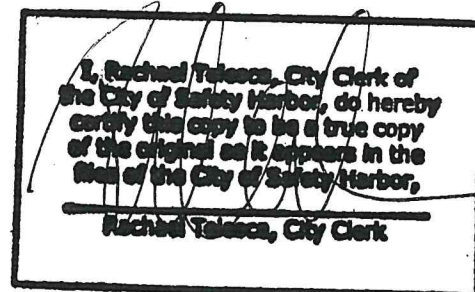 I, Rachael Telesca, City Clerk of
the City of Safety Harbor, do hereby
certify this copy to be a true copy
of the original as it appears in the
files of the City of Safety Harbor,
Rachael Telesca, City Clerk